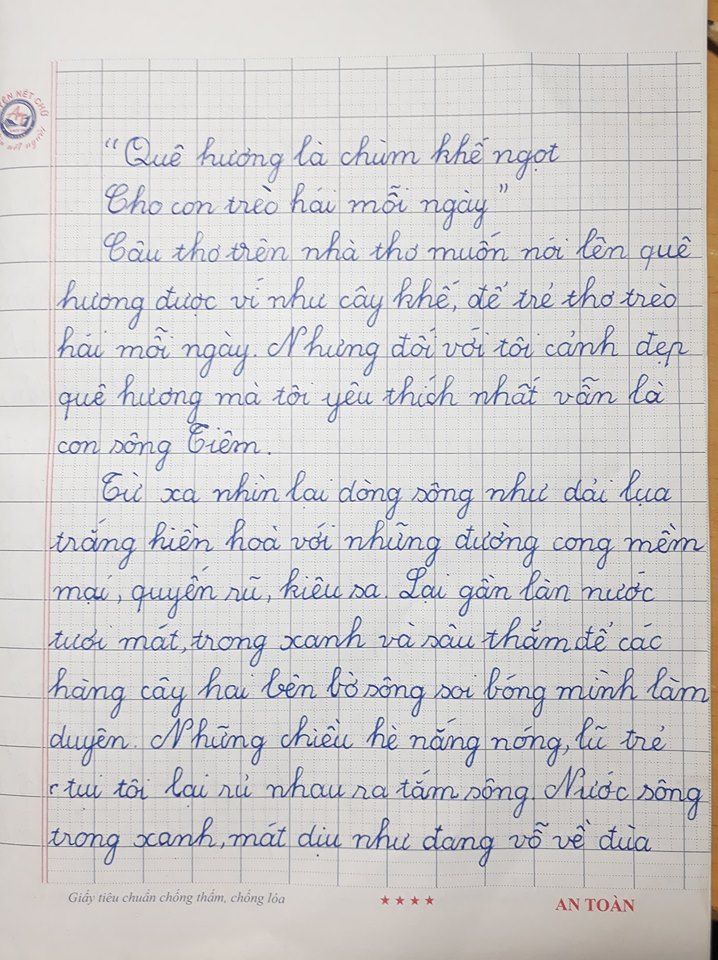 “Quê hương là chùm khế ngọt
Cho con trèo hái mỗi ngày”
Câu thơ trên nhà thơ muốn nói lên quê
hương được ví như cây khế, để trẻ thơ trèo
hái mỗi ngày. Nhưng đối với tôi cảnh đẹp
quê hương mà tôi yêu thích nhất vẫn là
con sông Tiêm.
Từ xa nhìn lại dòng sông như dải lụa
trắng hiền hoà với những đường cong mềm
mại, quyến rũ, kiêu sa. Lại gần làn nước
tươi mát, trong xanh và sâu thẳm để các
hàng cây hai bên bờ sông soi bóng mình làm
duyên. Những chiều hè nắng nóng, lũ trẻ
tụi tôi lại rủ nhau ra tắm sông. Nước sông
trong xanh, mát dịu như đang vỗ về đùa
Giấy tiêu chuẩn chống thấm, chống lóa ★★★★ AN TOÀN